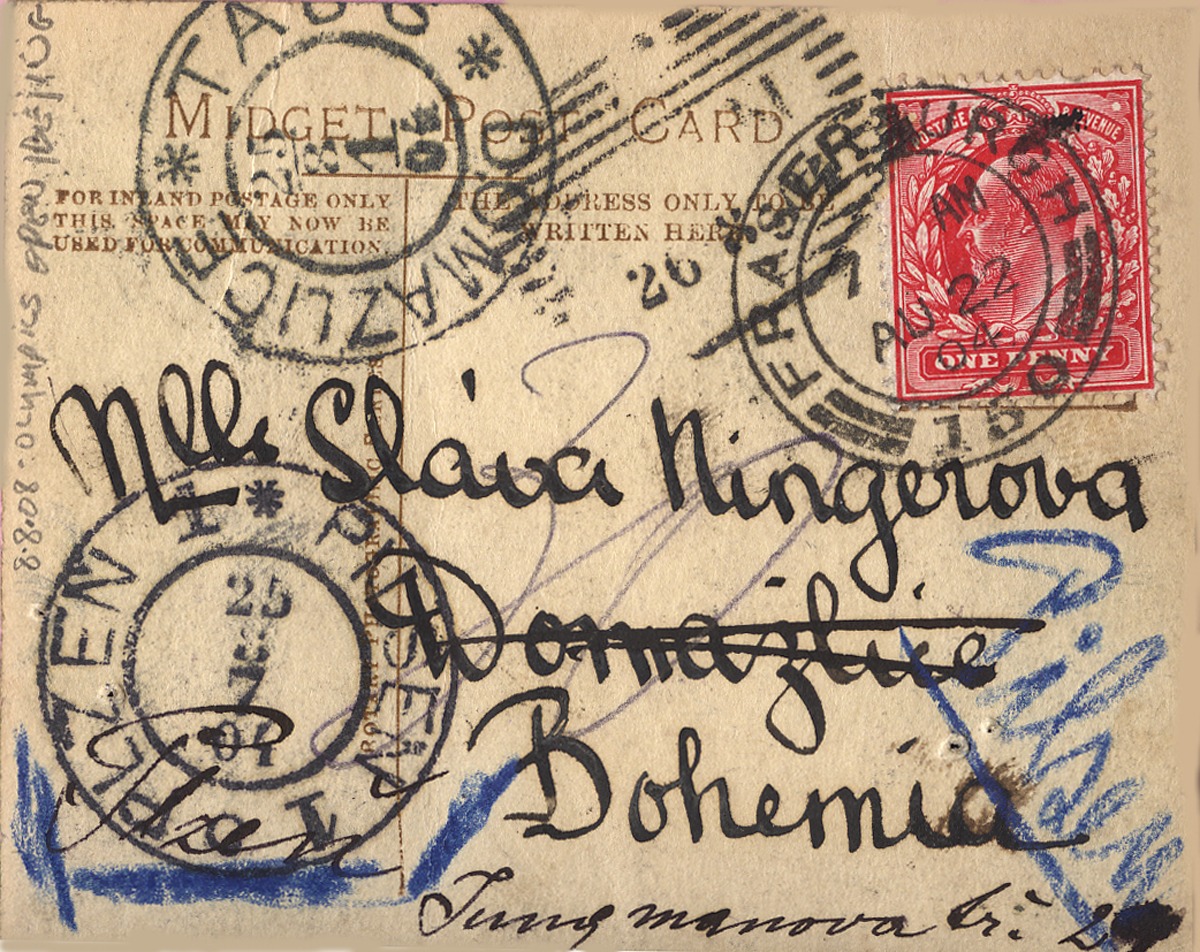 MIDGET POST CARD
FOR INLAND POSTAGE ONLY
THIS SPACE MAY NOW BE
USED FOR COMMUNICATION.
THE ADDRESS ONLY TO BE
WRITTEN HERE
TAUS
DOMAZLICE
25
8
1
04
26
FRASERBURGH
7 AM
AU 22
04
150
POSTAGE REVENUE
ONE PENNY
Mlle Sláva Ningerova
Domažlice
Bohemia
Pilsen
PILSEN 1
PLZEN 1
25
8
7
04
Plzen
Jungmanova
8.8.08 : OLYMPICS OPEN